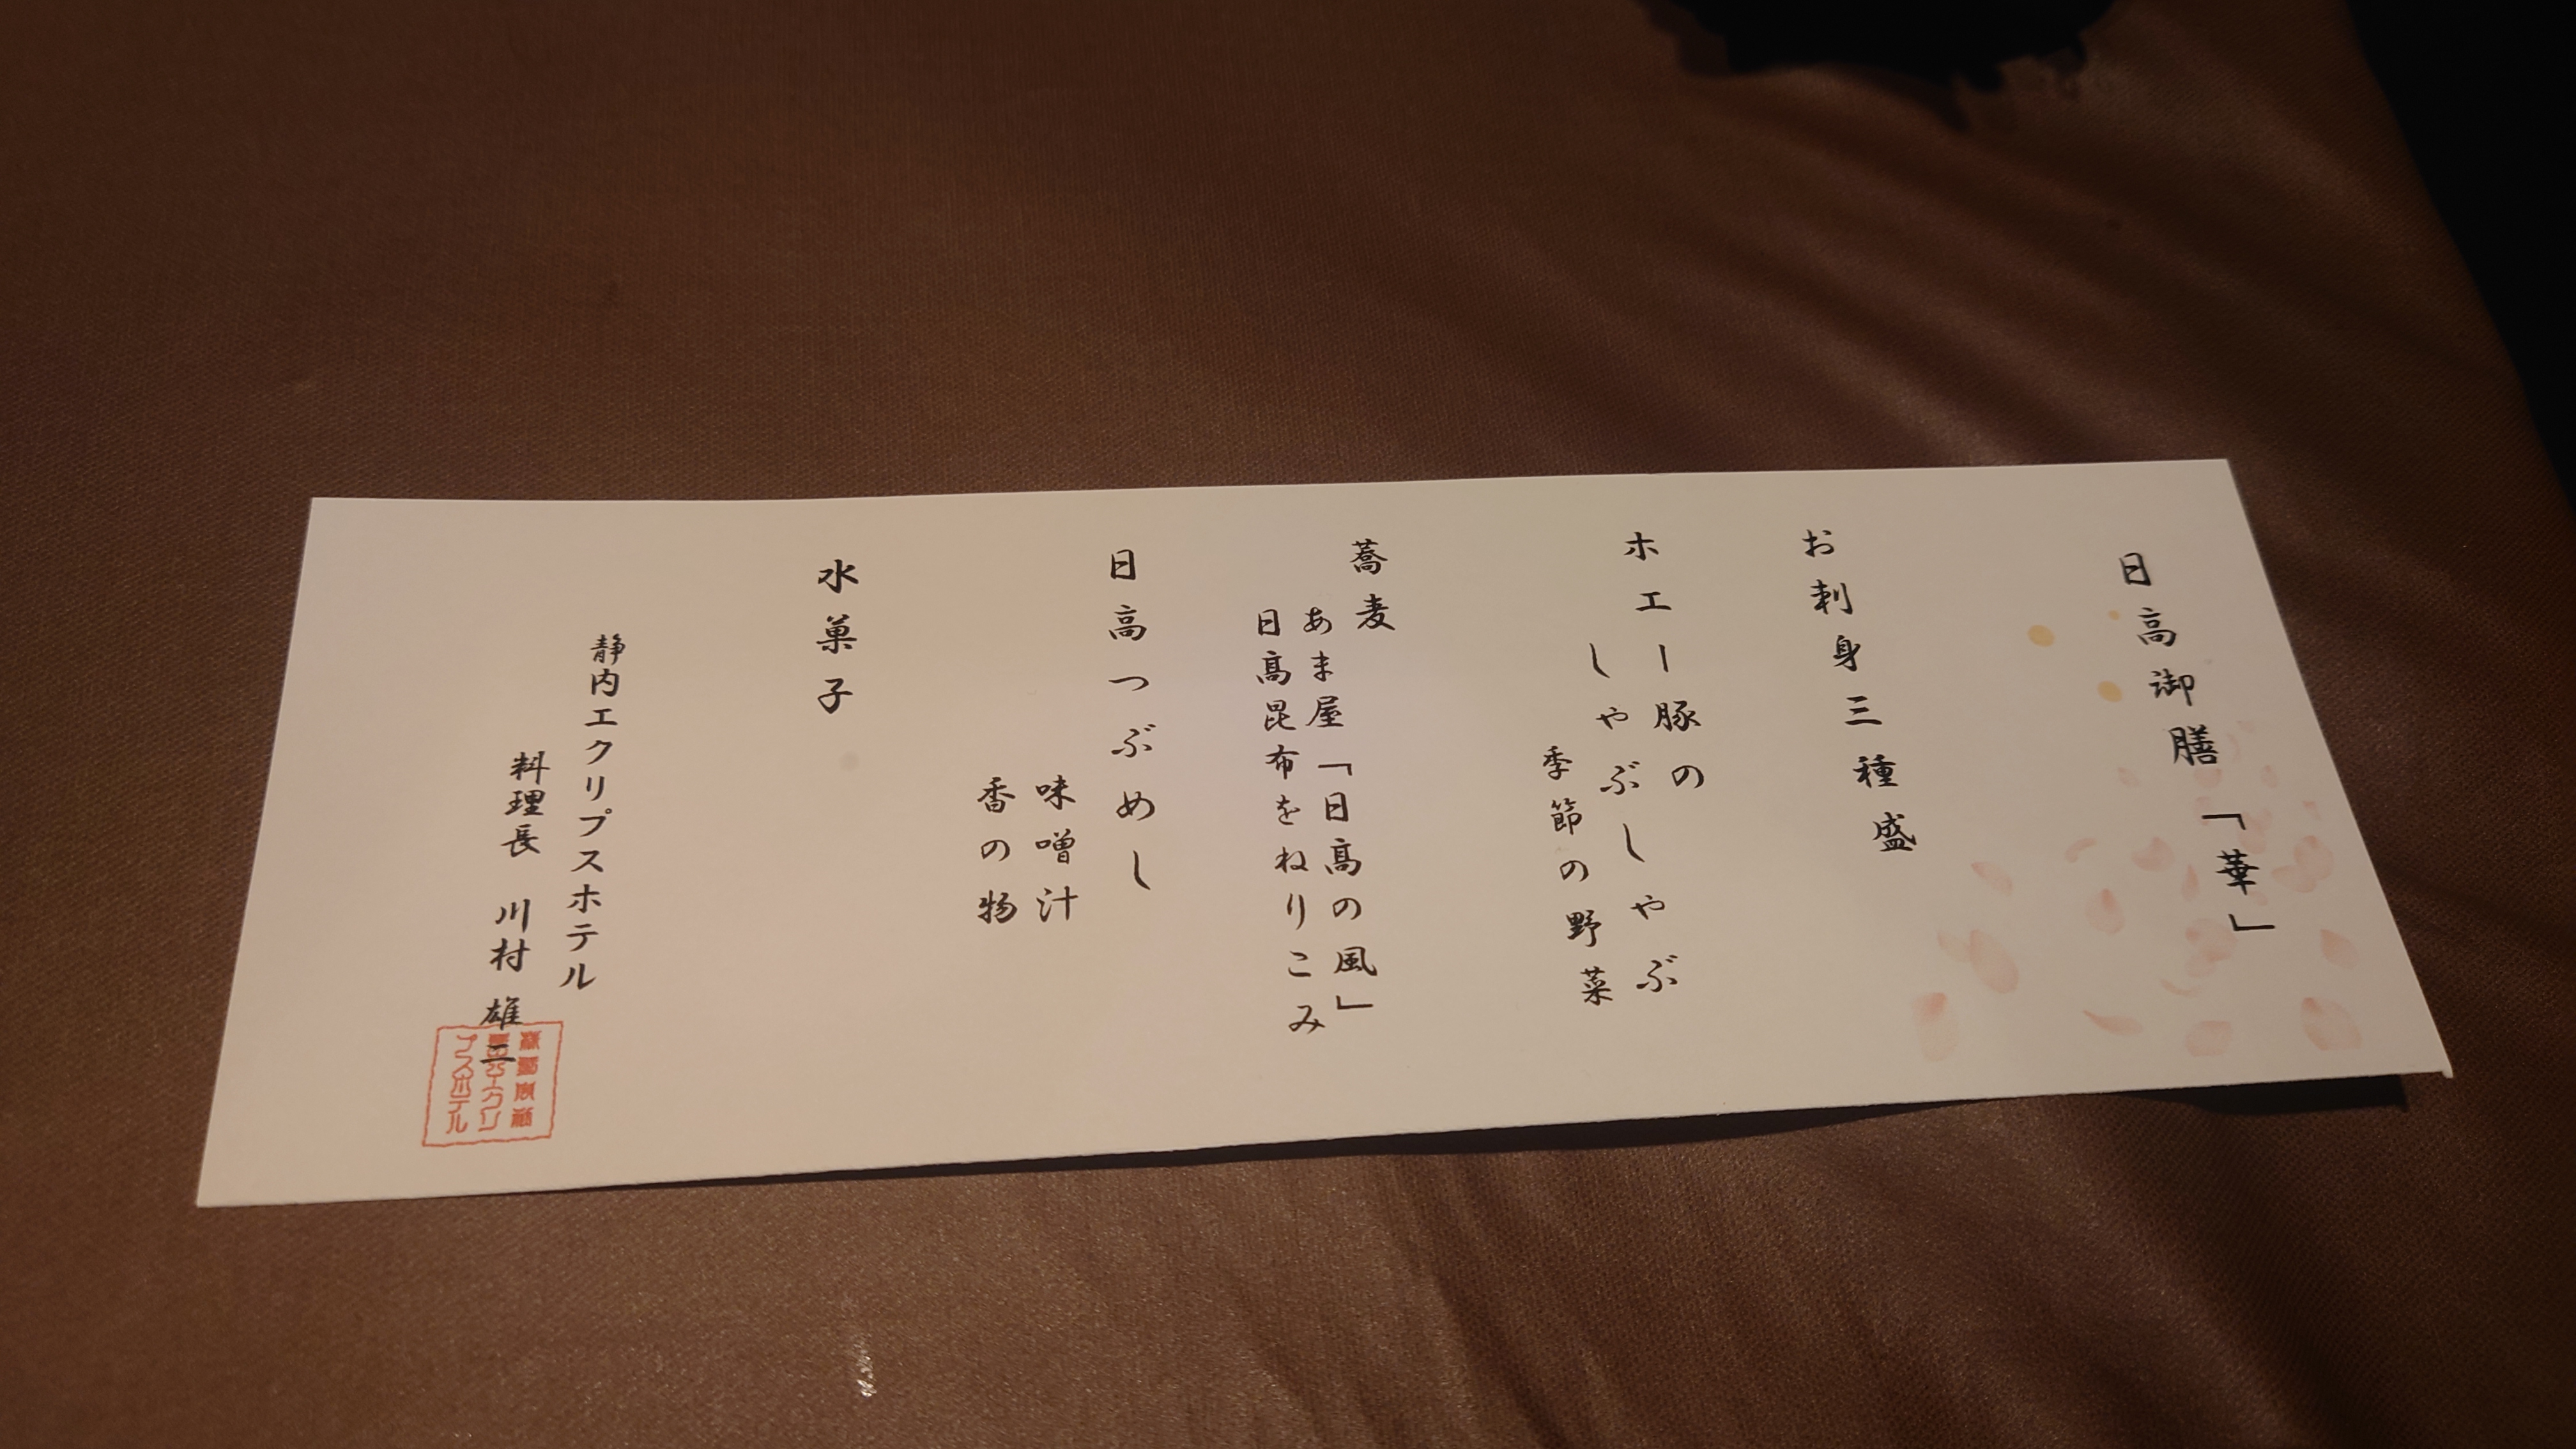 日高御膳「華」
お刺身三種盛
ホエー豚の
しゃぶしゃぶ
季節の野菜
蕎麦
あま屋「日高の風」
日高昆布をねりこみ
日高つぶめし
味噌汁
香の物
水菓子
静内エクリプスホテル
料理長 川村 雄二
エクリ
プスホテル